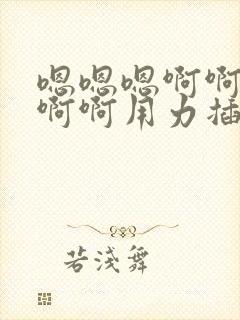 嗯嗯嗯啊啊
啊啊用力插
若浅舞